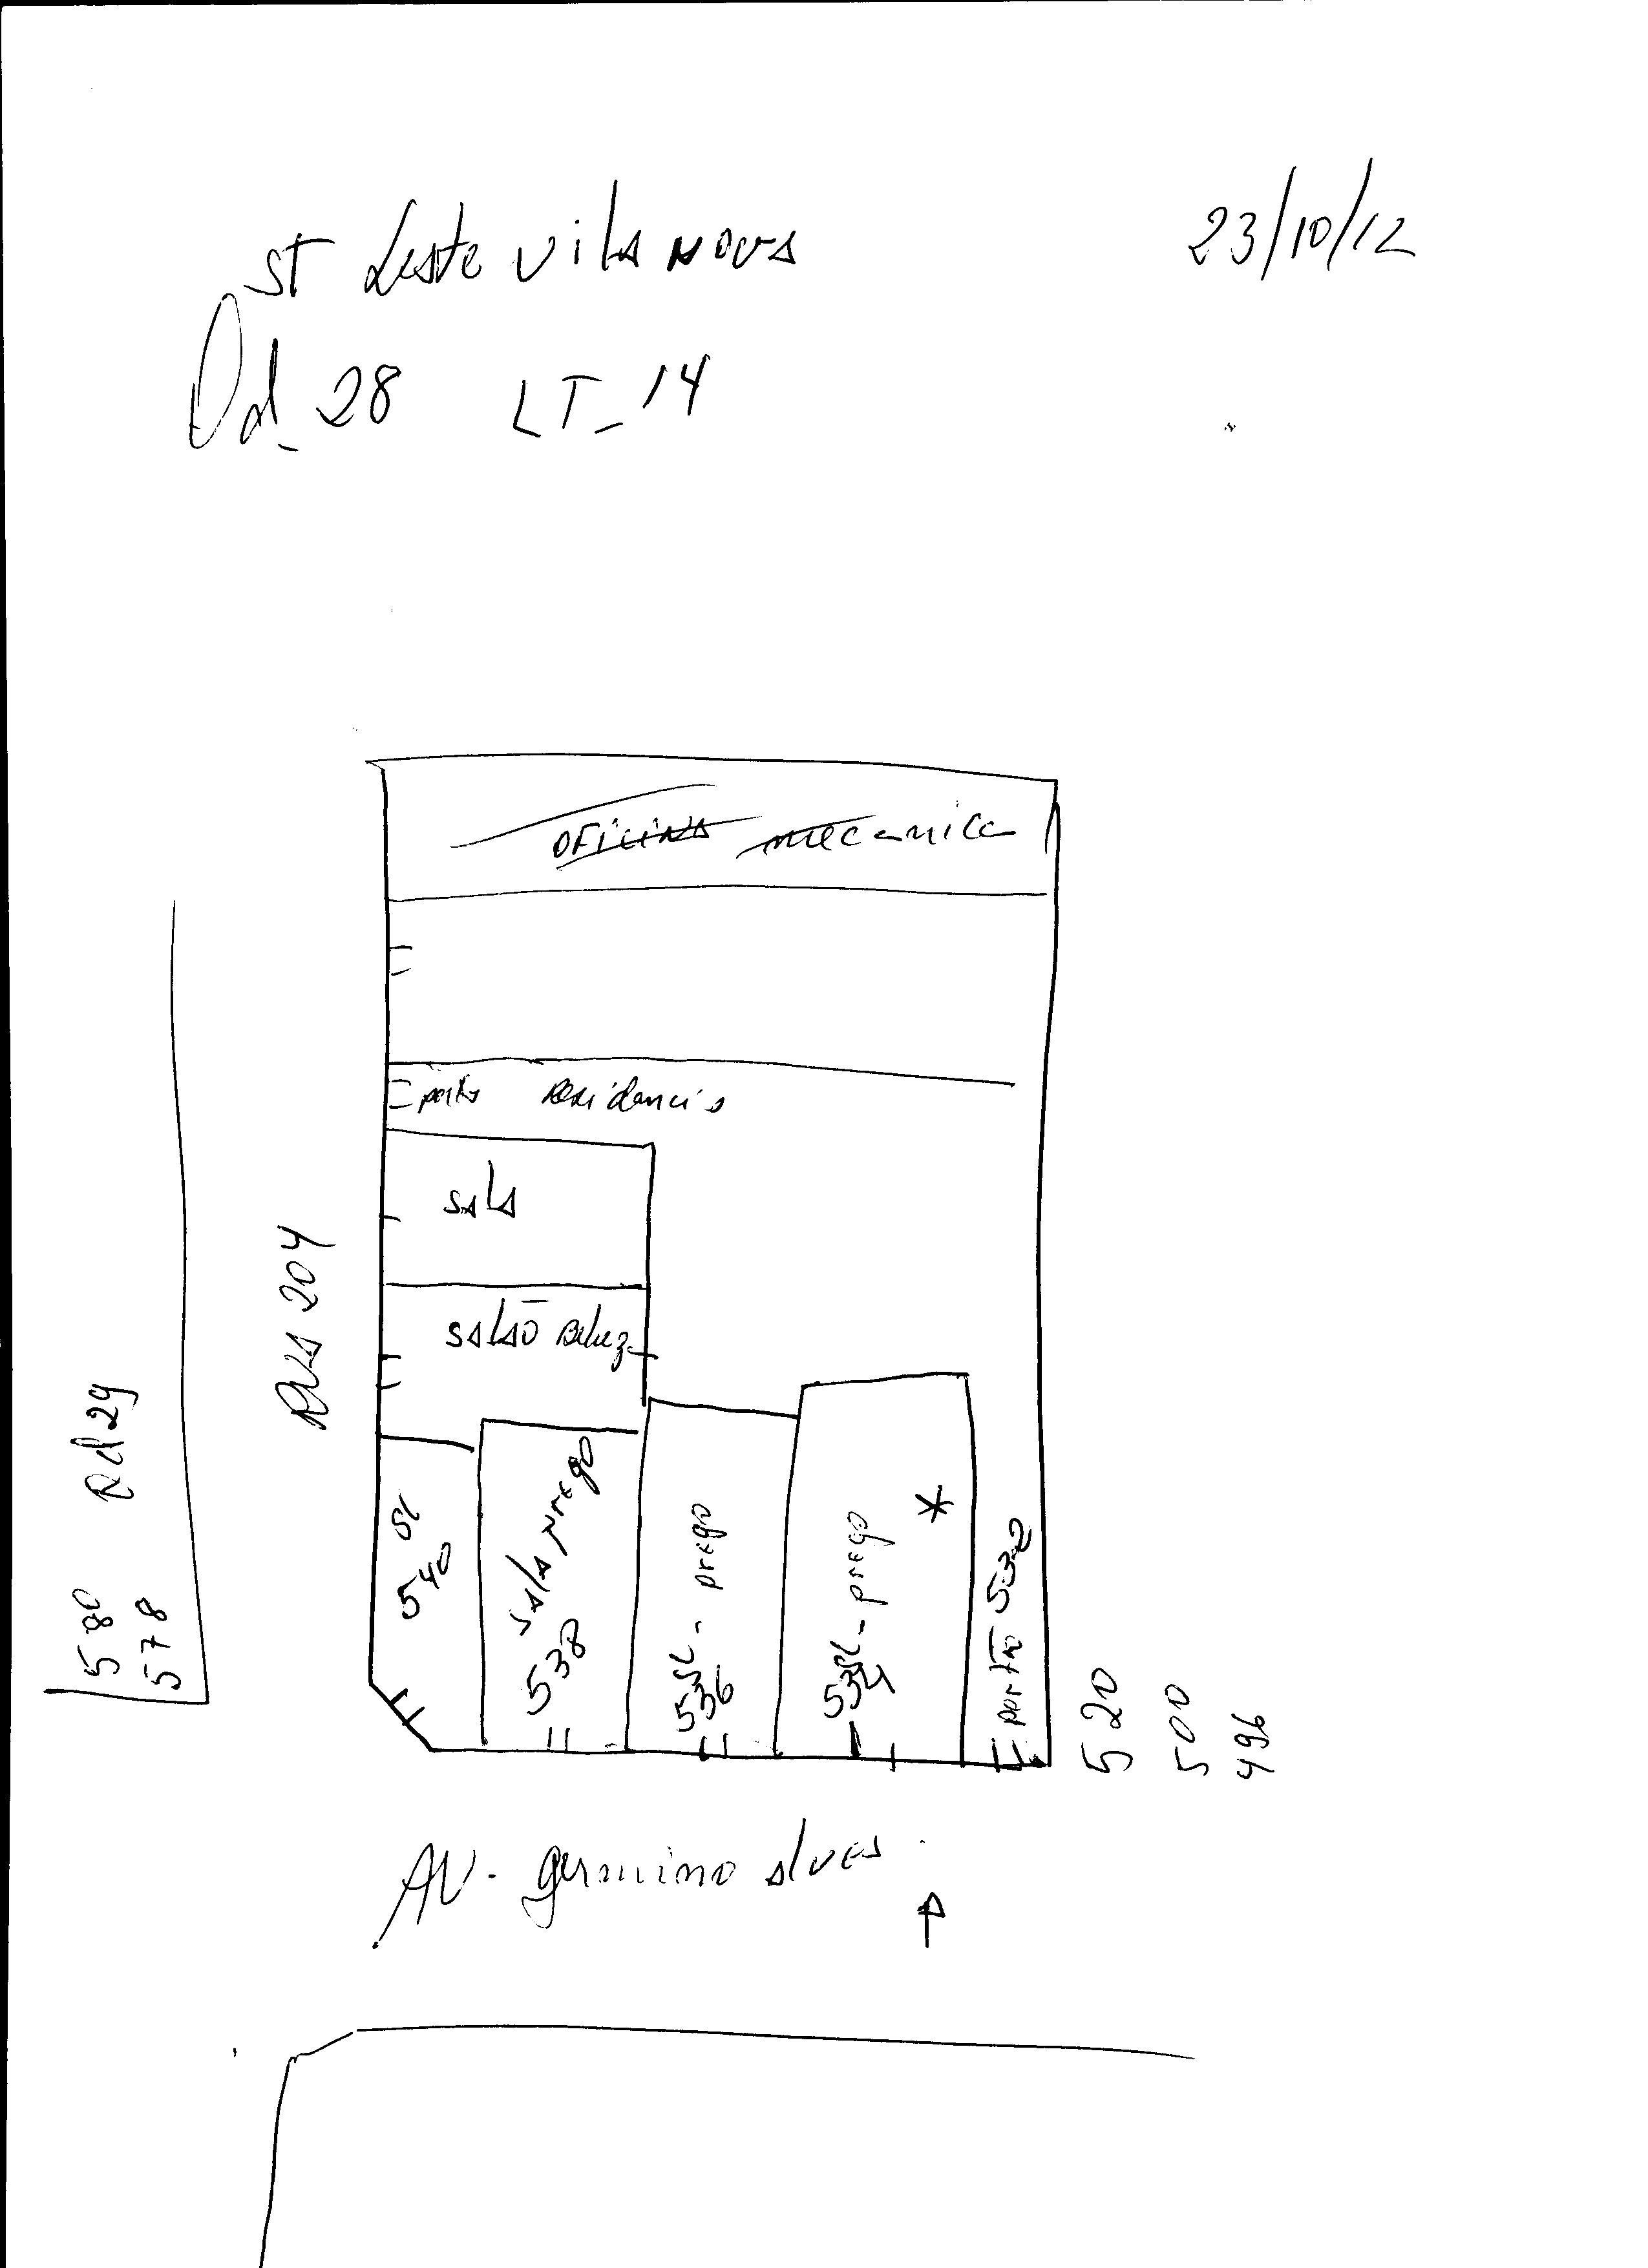 ST Leste vila nova
23/10/12
Qd_28 LT_14
OFICINA mecanica
porta Residencia
sala
salão Belez
RUA 204
Qd 29
580
578
SL 540
sala prego
538
SL - prego
536
SL - prego
534
*
portão 530
520
500
496
AV. germino alves